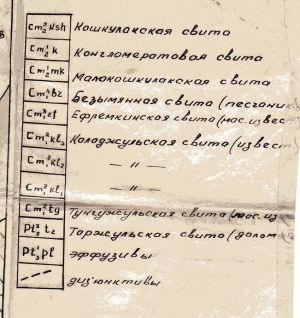 Cm₂²ksh Кошкулакская свита
Cm₂¹k Конгломератовая свита
Cm₂¹mk Малокошкулакская свита
Cm₁²bz Безымянная свита (песчаник
Cm₁²ef Ефремкинская свита (мас. извес
Cm₁²kl₃ Колоджульская свита (извест
Cm₁²kl₂ — 〃 —
Cm₁²kl₁ — 〃 —
Cm₁²tg Тунгужульская свита (мас. из
Pt₃³tz Торжульская свита (долом
Pt₃¹pl эффузивы
дизъюнктивы